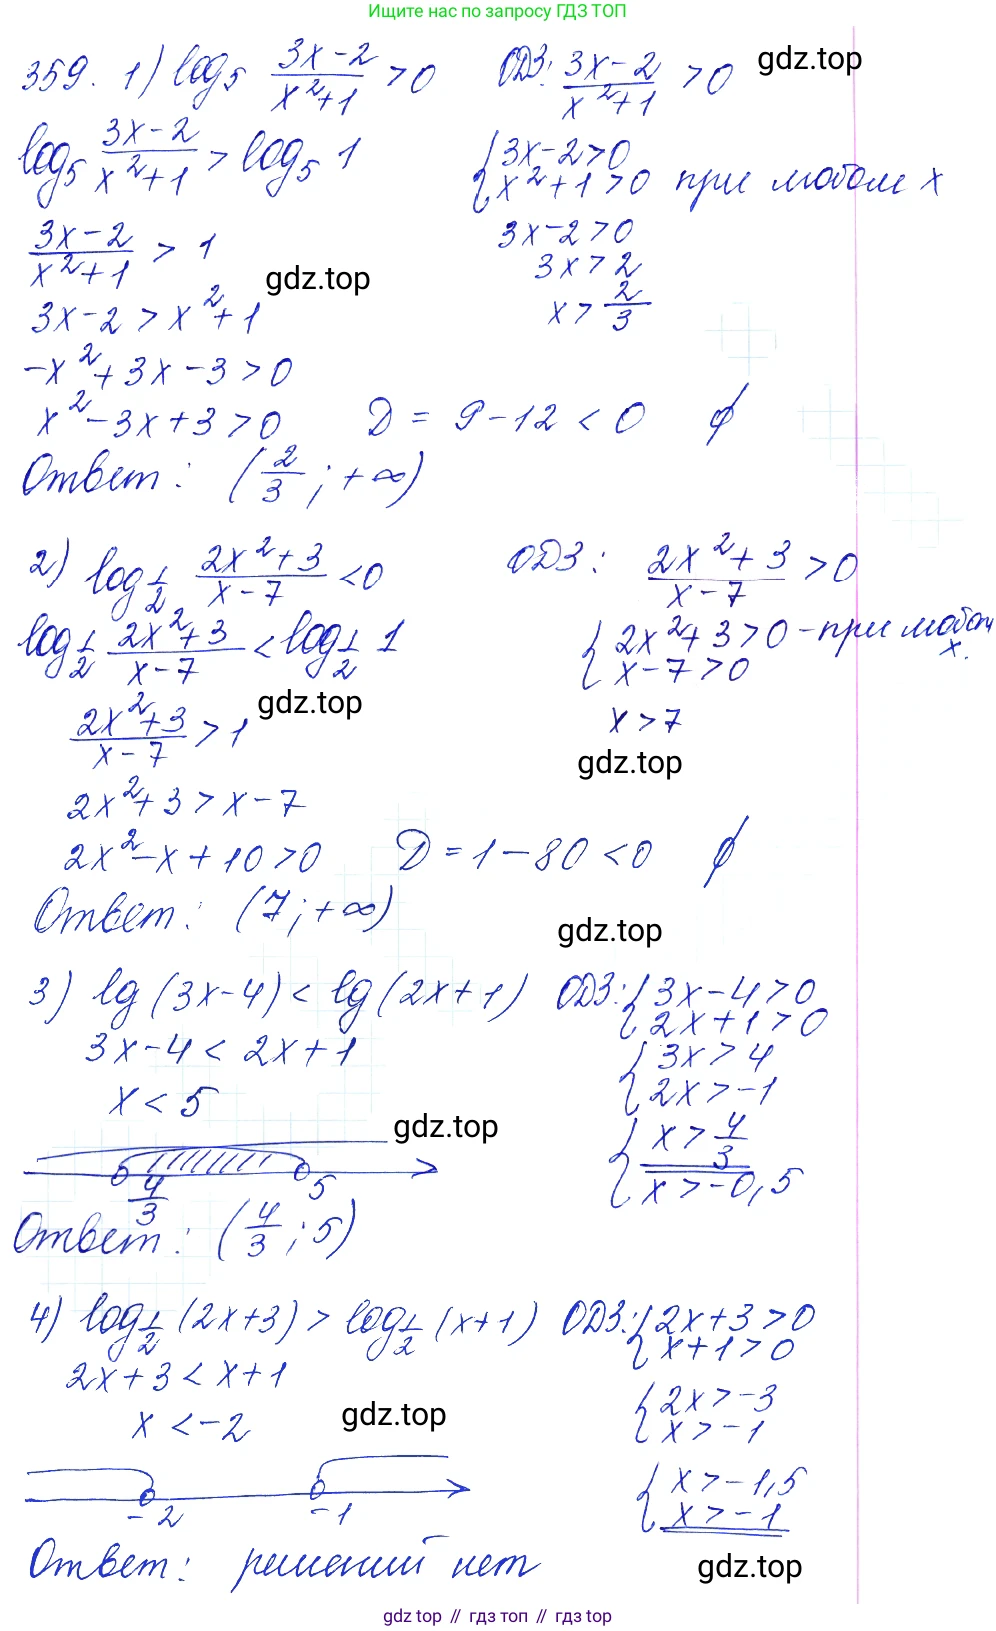 Ищите нас по запросу ГДЗ ТОП
359. 1) log₅ (3x-2)/(x²+1) > 0 ОДЗ: (3x-2)/(x²+1) > 0 gdz.top
log₅ (3x-2)/(x²+1) > log₅ 1 { 3x-2>0
(3x-2)/(x²+1) > 1 { x²+1>0 при любом x
3x-2>0
gdz.top 3x>2
3x-2 > x²+1 x > 2/3
-x²+3x-3>0
x²-3x+3>0 D = 9-12 < 0 ∅
Ответ: (2/3; +∞)
2) log_1/2 (2x²+3)/(x-7) < 0 ОДЗ: (2x²+3)/(x-7) > 0
log_1/2 (2x²+3)/(x-7) < log_1/2 1 { 2x²+3>0 - при любом x.
{ x-7>0
gdz.top
(2x²+3)/(x-7) > 1 x>7
gdz.top
2x²+3 > x-7
2x²-x+10>0 D = 1-80 < 0 ∅
Ответ: (7; +∞)
gdz.top
3) lg(3x-4) < lg(2x+1) ОДЗ: { 3x-4>0
{ 2x+1>0
3x-4 < 2x+1 { 3x>4
{ 2x>-1
x < 5
gdz.top { x > 4/3
{ x>-0,5
4/3 5
Ответ: (4/3; 5)
4) log_1/2 (2x+3) > log_1/2 (x+1) ОДЗ: { 2x+3>0
{ x+1>0
2x+3 < x+1
{ 2x>-3
x < -2 gdz.top { x>-1
{ x>-1,5
-2 -1 { x>-1
Ответ: решений нет gdz.top
gdz top // гдз топ // gdz top